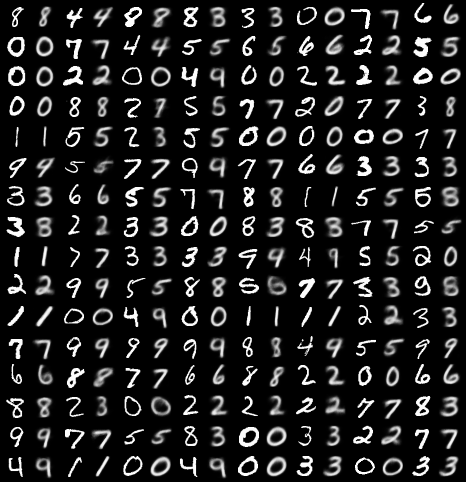 8 8 4 4 8 8 8 3 3 3 0 0 7 7 6 6
0 0 7 7 4 4 5 5 6 5 6 6 2 2 5 5
0 0 2 2 0 0 4 9 0 0 2 2 2 2 0 0
0 0 8 8 2 7 5 5 7 7 2 0 7 7 3 8
1 1 5 5 2 3 5 5 0 0 0 0 0 0 7 7
9 9 5 5 7 7 9 9 7 7 6 6 3 3 3 3
3 3 6 6 5 5 7 7 8 8 1 1 5 5 5 8
3 8 2 2 3 3 0 0 8 3 8 8 7 7 5 5
1 1 7 7 3 3 3 3 9 9 4 9 5 5 2 0
2 2 9 9 5 5 8 8 5 5 7 7 3 3 9 8
1 1 0 0 4 9 0 0 1 1 1 1 2 2 3 3
7 7 9 9 9 9 9 9 8 8 4 9 5 5 9 9
6 6 8 8 7 7 6 6 8 8 2 2 0 0 6 6
8 8 2 3 0 0 2 2 2 2 2 2 7 7 8 3
9 9 7 7 5 5 8 3 0 0 3 3 2 2 7 7
4 9 1 1 0 0 4 9 0 0 3 3 0 0 3 3